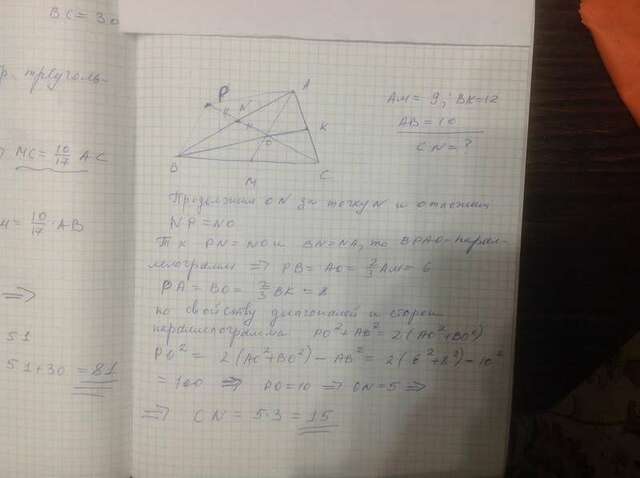 BC = 30
р. треуголь-
MC = 10/17 AC
M = 10/17 · AB
=>
51
51+30 = 81
P
A
N
K
O
B
M
C
AM = 9; BK = 12
AB = 10
CN = ?
Продолжим ON за точку N и отложим
NP = NO
Т.к PN = NO и BN = NA, то BPAO - парал-
лелограмм => PB = AO = 2/3 AM = 6
PA = BO = 2/3 BK = 8
по свойству диагоналей и сторон
параллелограмма PO² + AB² = 2(AO² + BO²)
PO² = 2(AO² + BO²) - AB² = 2(6² + 8²) - 10²
= 100 => PO = 10 => ON = 5 =>
=> CN = 5·3 = 15